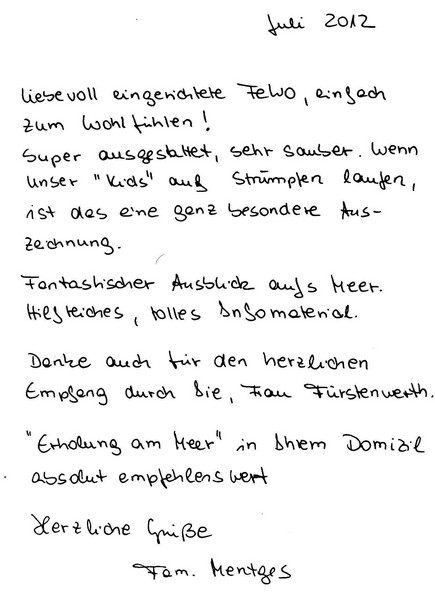 Juli 2012
Liebevoll eingerichtete FeWo, einfach
zum Wohlfühlen!
Super ausgestattet, sehr sauber. Wenn
unser "Kids" auf Strümpfen laufen,
ist das eine ganz besondere Aus-
zeichnung.
Fantastischer Ausblick aufs Meer.
Hilfreiches, tolles Infomaterial.
Danke auch für den herzlichen
Empfang durch Sie, Frau Fürstenwerth.
"Erholung am Meer" in Ihrem Domizil
absolut empfehlenswert
Herzliche Grüße
Fam. Mentges